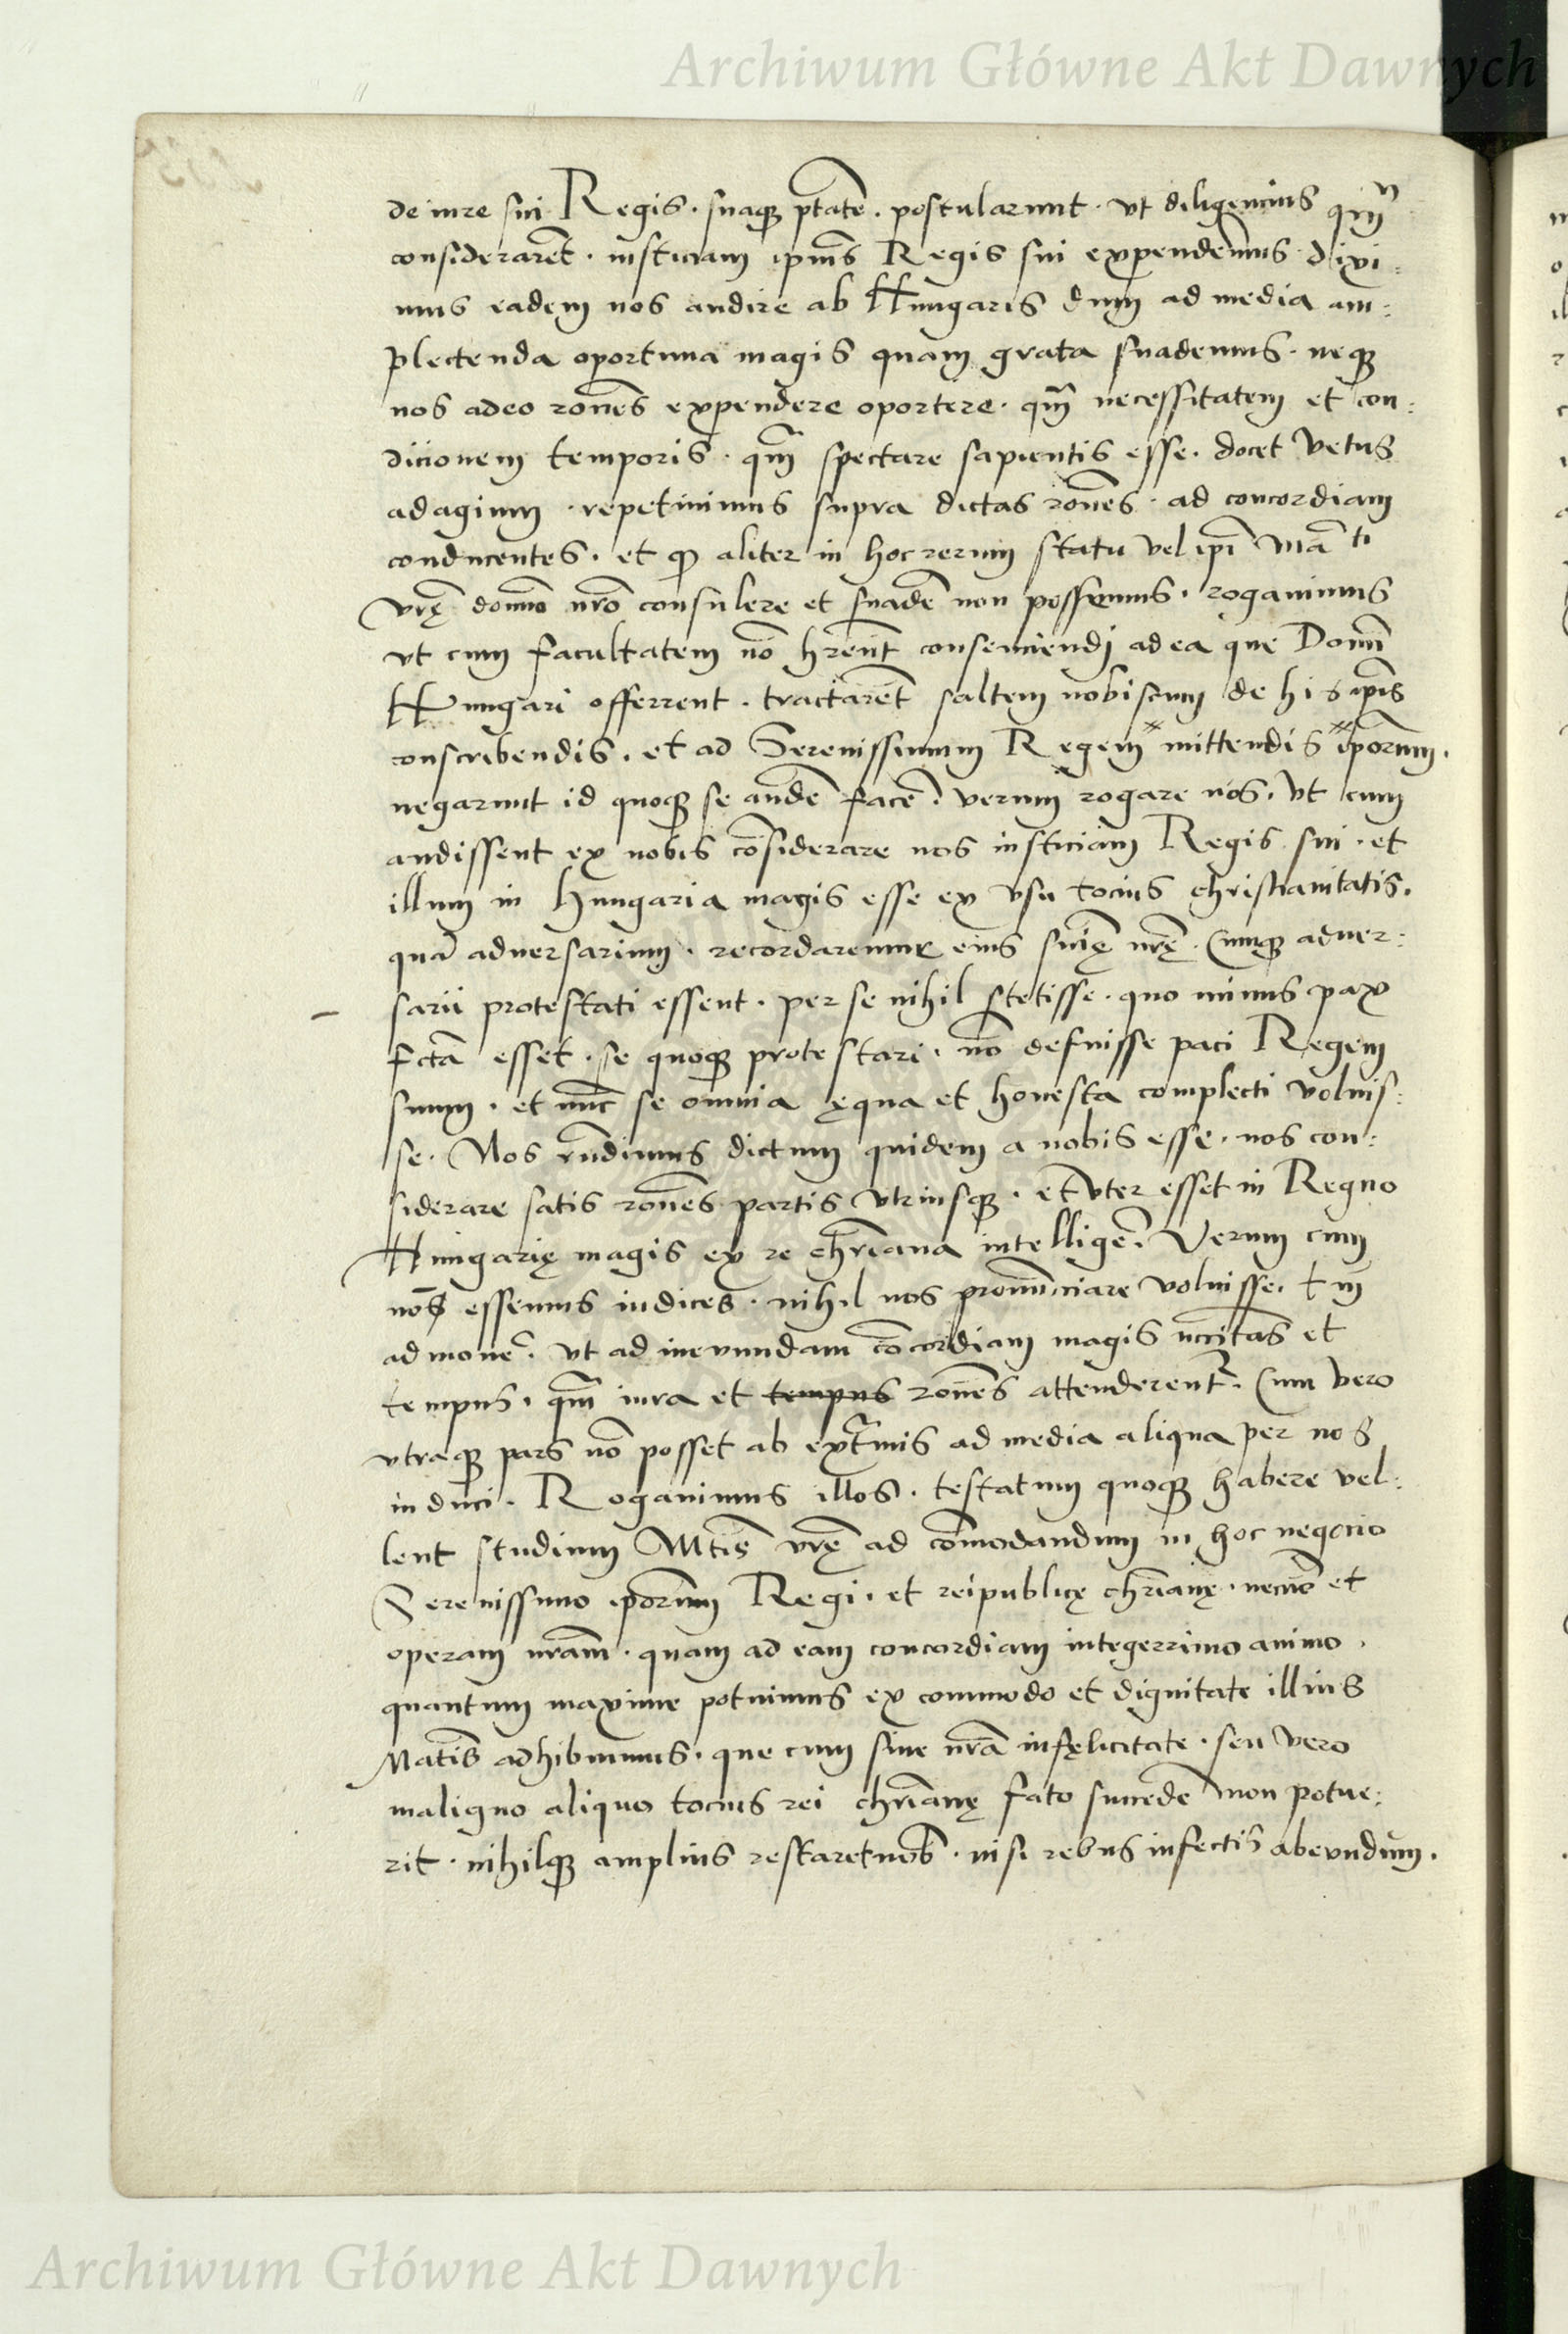 Archiwum Główne Akt Dawnych
de iure sui Regis · suaq3 ptatē · postularunt · vt diligencius qm̄
considerarēt · iusticiam ipius Regis sui expenderemus · dixi:
mus eadem nos audire ab Hungaris dum ad media am:
plectenda oportuna magis quam grata suademus · neq3
nos adeo rōnes expendere oportere · qm̄ necessitatem et con:
dicionem temporis · qm̄ spectare sapientis esse · docet vetus
adagium · repetiuimus supra dictas rōnes · ad concordiam
conducentes · et q3 aliter in hoc rerum statu vel ipī Māti
vrę domno nrō consulere et suadē non possemus · rogauimus
vt cum facultatem nō hrent consenciendi ad ea que Domi
Hungari offerrent · tractarēt saltem nobiscum de his ipīs
conscribendis · et ad Serenissimum Regem mittendis ipōrum ·
negarunt id quoq3 se audē facē · verum rogare nos · vt cum
audissent ex nobis cōsiderare nos iusticiam Regis sui · et
illum in Hungaria magis esse ex vsu tocius christianitatis ·
quā aduersarium · recordaremur eius suię nrę · Cumq3 aduer:
sarii protestati essent · per se nihil stetisse · quo minus pax
fctā esset · se quoq3 protestari · nō defuisse paci Regem
suum · et nūc se omnia ęqua et honesta complecti voluis:
se · Nos rn̄dimus dictum quidem a nobis esse · nos con:
siderare satis rōnes partis vtriusq3 · et vter esset in Regno
Hungarię magis ex re chrīana intelligē · Verum cum
nō essemus iudices · nihil nos pronunciare voluisse · tm̄
admonē · vt ad ineundam cōcordiam magis nccitas et
tempus · qm̄ iura et tempus rōnes attenderent · Cum vero
vtraq3 pars nō posset ab extmis ad media aliqua per nos
induci · Rogauimus illos · testatum quoq3 habere vel:
lent studium Mtis vrę ad cōmodandum in hoc negocio
Serenissimo ipōrum Regi · et reipublicę chrīanę · necnō et
operam nrām · quam ad eam concordiam integerrimo animo ·
quantum maxime potuimus ex commodo et dignitate illius
Matis adhibuimus · que cum siue nrā infęlicitate · seu vero
maligno aliquo tocius rei chrīanę fato succedē non potue:
rit · nihilq3 amplius restaret nob · nisi rebus infectis abeundum ·
Archiwum Główne Akt Dawnych